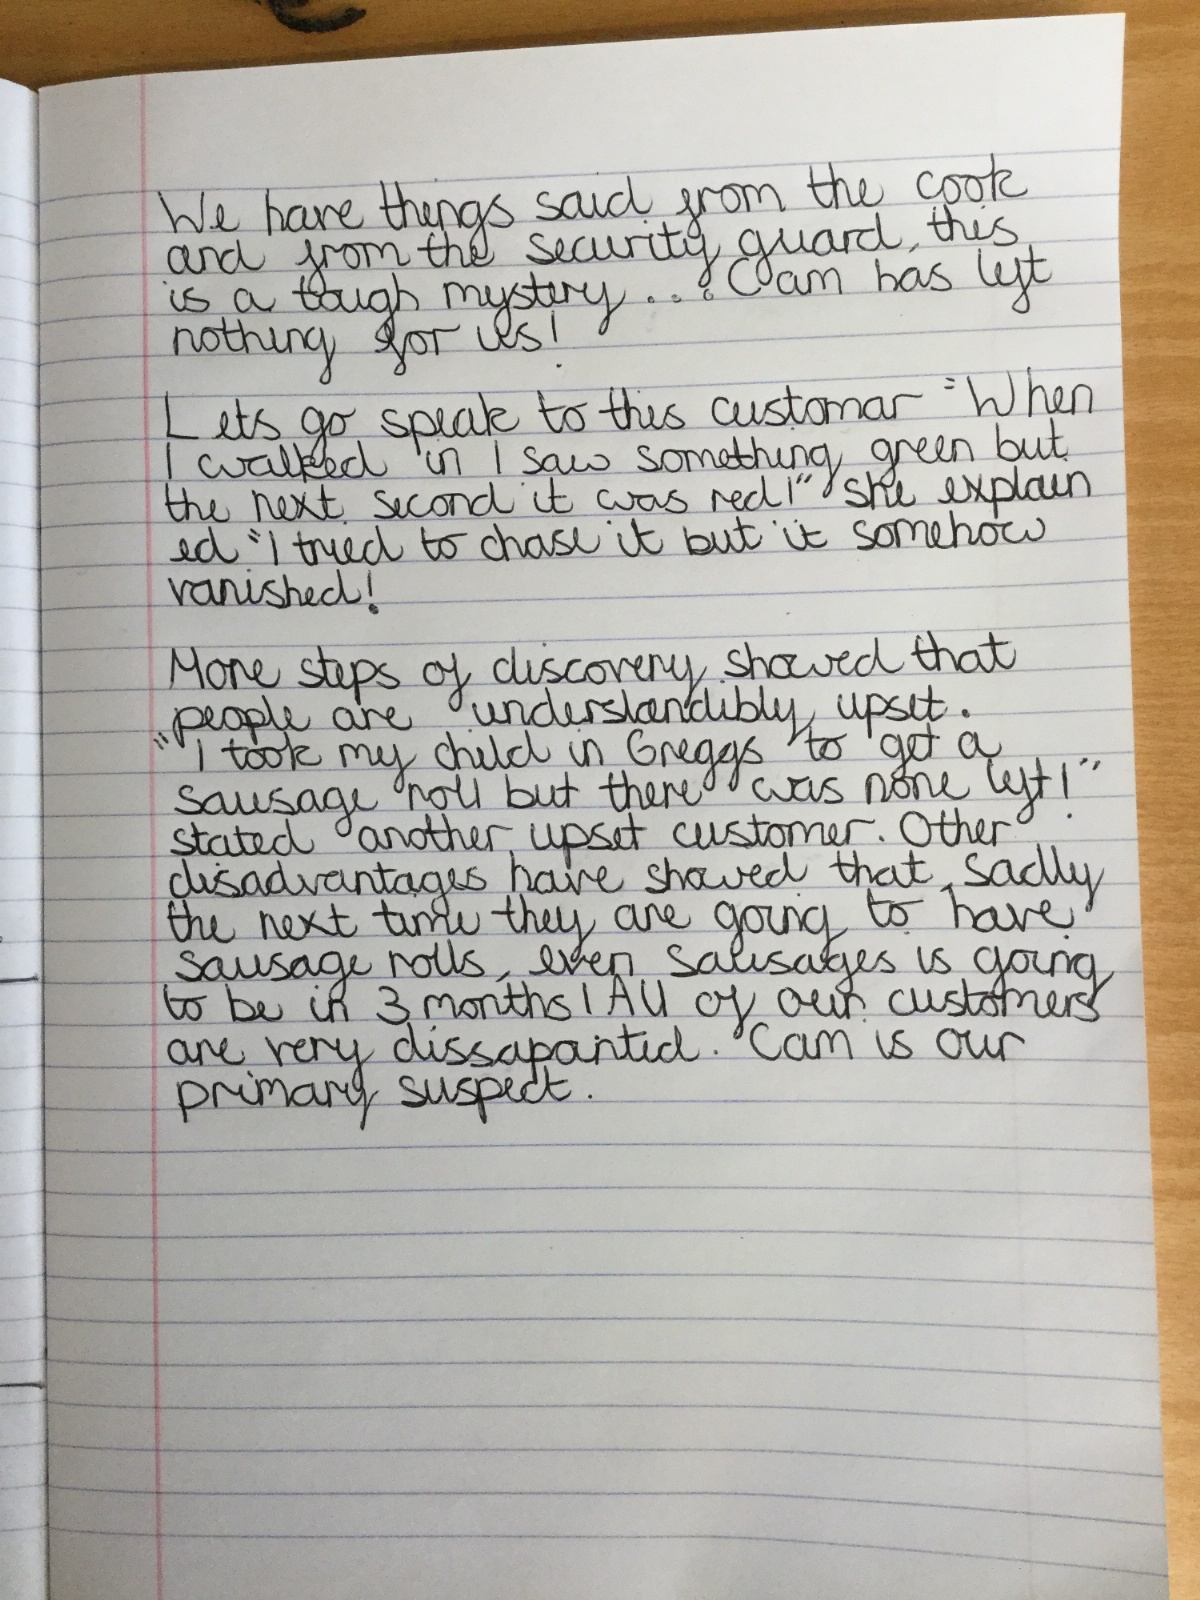 We have things said from the cook
and from the security guard, this
is a tough mystery... Cam has left
nothing for us!
Lets go speak to this customar "When
I walked in I saw something green but
the next second it was red!" she explain
ed "I tried to chase it but it somehow
vanished!
More steps of discovery showed that
people are understandibly upset.
"I took my child in Greggs to get a
sausage roll but there was none left!"
stated another upset customer. Other
disadvantages have showed that, sadly
the next time they are going to have
sausage rolls, even sausages is going
to be in 3 months! All of our customers
are very dissapantid. Cam is our
primary suspect.